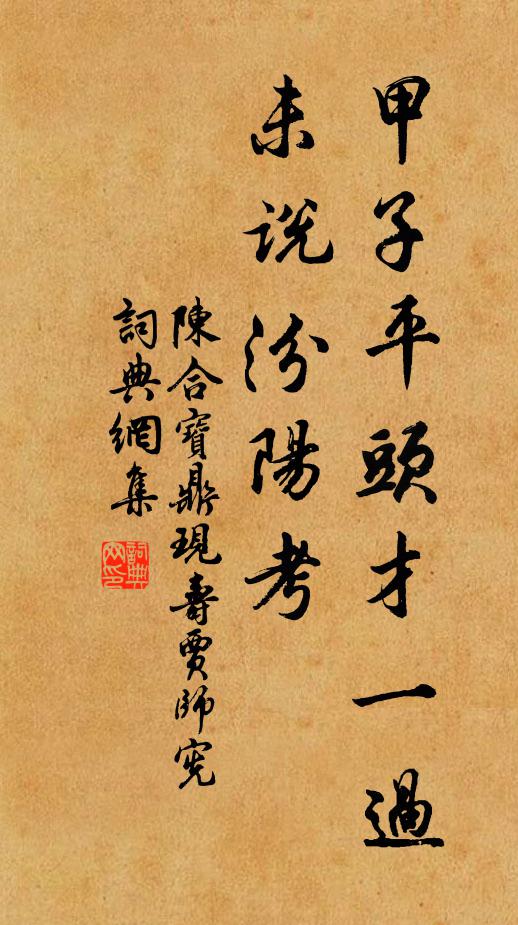 甲子平頭才一過
未說汾陽考
陳合寶鼎現壽賈師宪
詞典網集
詞典网印